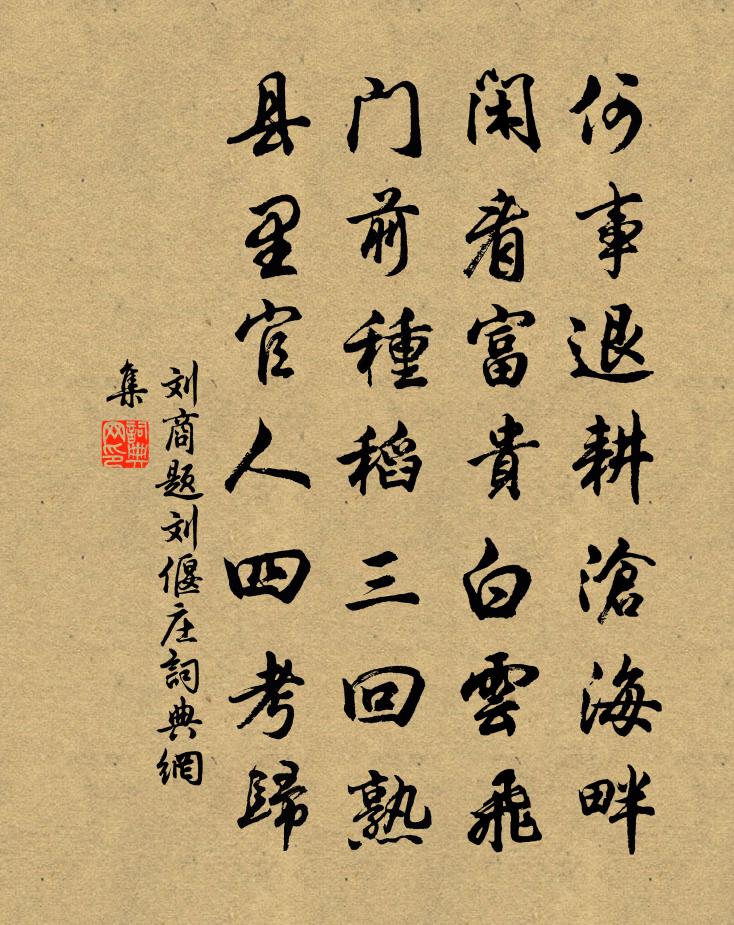 何事退耕滄海畔
閑看富貴白雲飛
门前種稻三回熟
县里官人四考歸
刘商题刘偃庄詞典網
集
詞典网印